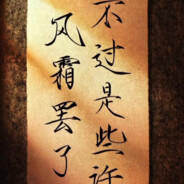 不过是些许
风霜罢了